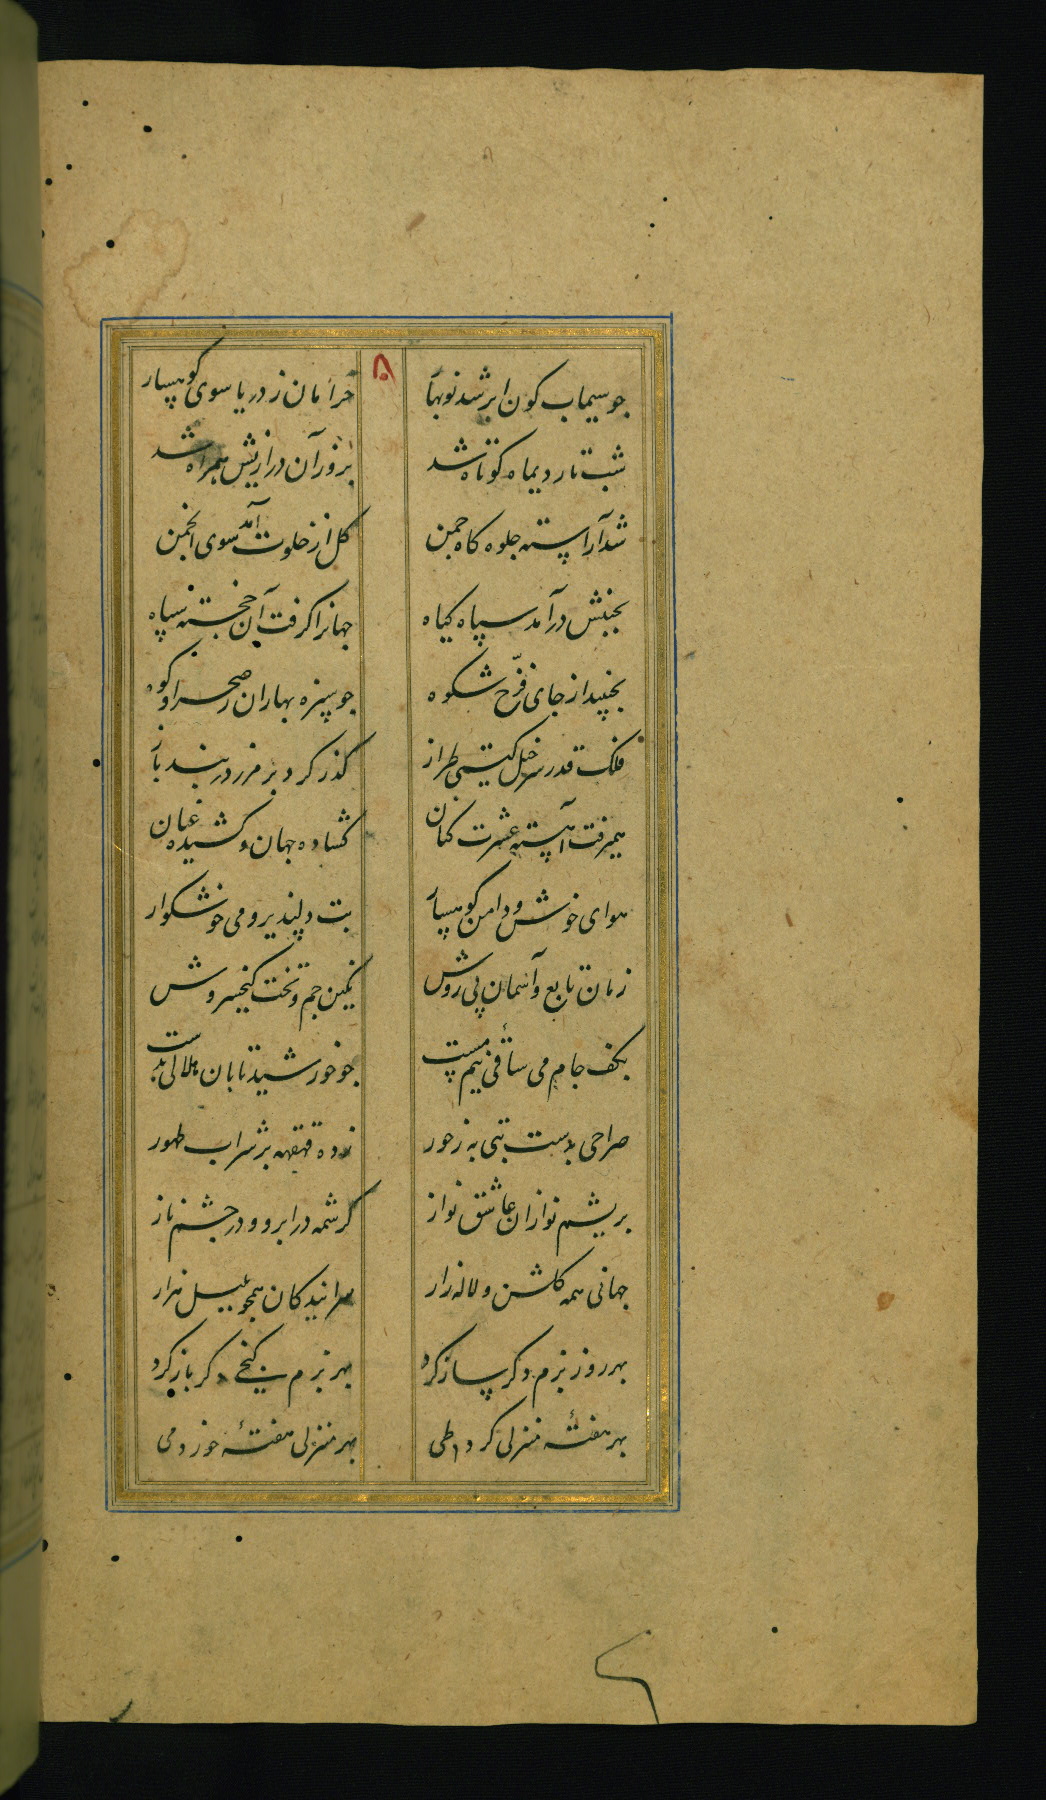 ۵
چو سیماب کون ابر شد نوبهار خرامان ز دریا سوی کوهسار
شب تار دیماه کوتاه شد بروز آن درازیش همراه شد
شد آراسته جلوه کاه چمن کل از خلوت آمد سوی انجمن
بجنبش درآمد سپاه کیاه جهانرا کرفت آن خجسته سپاه
بجنبید از جای فرّخ شکوه چو سبزه بهاران ز صحرا و کوه
فلک قدر سرخیل کیتی طراز کذر کرد بر مرز دربند باز
همیرفت آهسته عشرت کنان کشاده جهان و کشیده عنان
هوای خوش و دامن کوهسار بت دلپذیر و می خوشکوار
زمان تابع و آسمان پی روش نکین جم و تخت کیخسروش
بکف جام می ساقی نیم مست چو خورشید تابان هلالی بدست
صراحی بدست بتی به ز حور زده قهقهه بر شراب طهور
بریشم نوازان عاشق نواز کرشمه در ابرو و در چشم ناز
جهانی همه کلشن و لاله زار سرایندکان همچو بلبل هزار
بهر روز بزم دکر ساز کرد بهر بزم کنجی دکر باز کرد
بهر هفتهٔ منزلی کرد طی بهر منزلی هفتهٔ خورد می